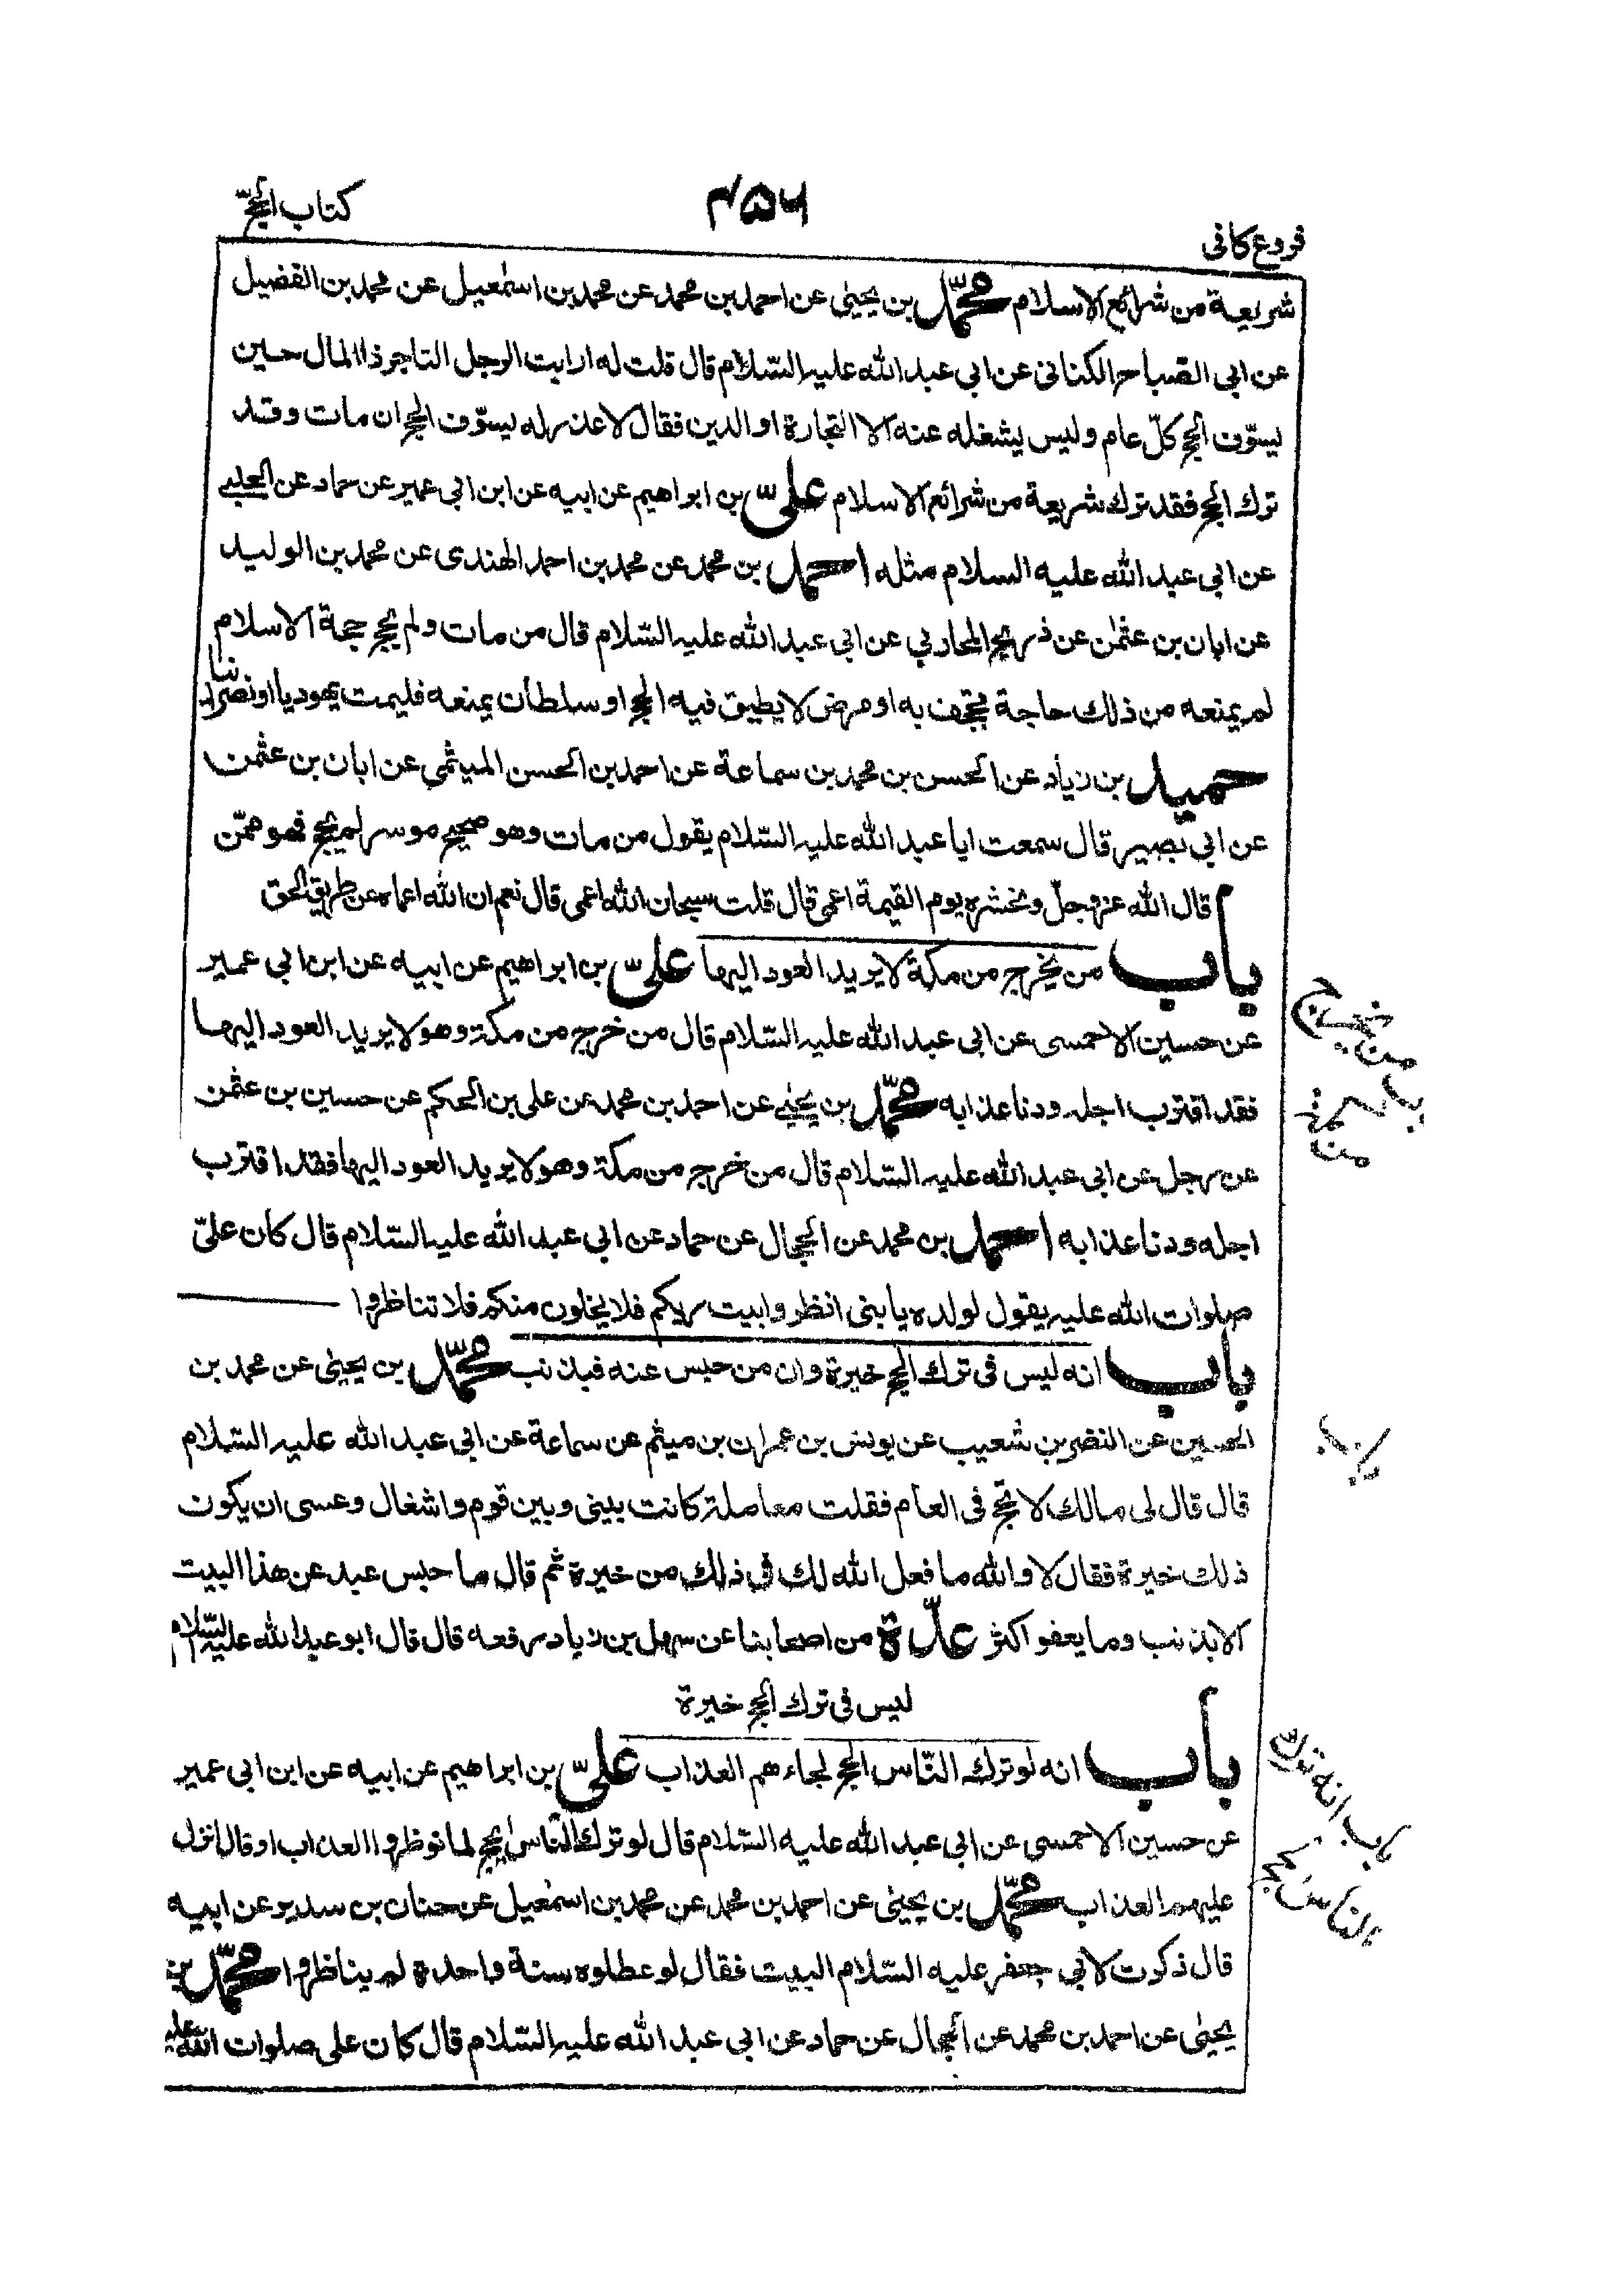 كتاب الحجّ
٤٥٦
فروع كافى
شريعة من شرائع الاسلام محمّد بن يحيىٰ عن احمد بن محمد عن محمد بن اسمٰعيل عن محمد بن الفضيل
عن ابى الصّباح الكنانى عن ابى عبد الله عليه السّلام قال قلت له ارايت الرجل التاجر ذا المال حين
يسوّف الحج كلّ عام وليس يشغله عنه الا التجارة او الدين فقال لا عذر له يسوّف الحج ان مات وقد
ترك الحج فقد ترك شريعة من شرائع الاسلام علىّ بن ابراهيم عن ابيه عن ابن ابى عمير عن حماد عن الحلبے
عن ابى عبد الله عليه السلام مثله احمد بن محمد عن محمد بن احمد الهندى عن محمد بن الوليد
عن ابان بن عثمٰن عن ذريح المحاربي عن ابى عبد الله عليه السّلام قال من مات ولم يحج حجة الاسلام
لم يمنعه من ذلك حاجة تجحف به او مرض لا يطيق فيه الحج او سلطان يمنعه فليمت يهوديا او نصرانيا
حميد بن زياد عن الحسن بن محمد بن سماعة عن احمد بن الحسن الميثمى عن ابان بن عثمٰن
عن ابى بصير قال سمعت ابا عبد الله عليه السّلام يقول من مات وهو صحيح موسر لم يحج فهو ممّن
قال الله عز وجلّ ونحشره يوم القيمة اعمى قال قلت سبحان الله اعمى قال نعم ان الله اعماه عن طريق الحق
باب من يخرج من مكة لا يريد العود اليها علىّ بن ابراهيم عن ابيه عن ابن ابى عمير
عن حسين الاحمسى عن ابى عبد الله عليه السّلام قال من خرج من مكة وهو لا يريد العود اليها
فقد اقترب اجله ودنا عذابه محمّد بن يحيٰے عن احمد بن محمد عن على بن الحكم عن حسين بن عثمٰن
عن رجل عن ابى عبد الله عليه السّلام قال من خرج من مكة وهو لا يريد العود اليها فقد اقترب
اجله ودنا عذابه احمد بن محمد عن الحجال عن حماد عن ابى عبد الله عليه السّلام قال كان علىّ
صلوات الله عليه يقول لولده يا بنى انظروا بيت ربكم فلا يخلون منكم فلا تناظروا
باب انه ليس فى ترك الحج خيرة وان من حبس عنه فبذنب محمّد بن يحيىٰ عن محمد بن
الحسين عن النضر بن شعيب عن يونس بن عمران بن ميثم عن سماعة عن ابى عبد الله عليه السّلام
قال قال لى مالك لا تحج فى العام فقلت معاملة كانت بينى وبين قوم واشغال وعسى ان يكون
ذلك خيرة فقال لا والله ما فعل الله لك فى ذلك من خيرة ثم قال ما حبس عبد عن هذا البيت
الا بذنب وما يعفو اكثر عدّة من اصحابنا عن سهل بن زياد رفعه قال قال ابو عبد الله عليه السّلام
ليس فى ترك الحج خيرة
باب انه لو ترك النّاس الحج لجاءهم العذاب علىّ بن ابراهيم عن ابيه عن ابن ابى عمير
عن حسين الاحمسى عن ابى عبد الله عليه السّلام قال لو ترك النّاس الحج لما نوظروا العذاب او قال انزل
عليهم العذاب محمّد بن يحيىٰ عن احمد بن محمد عن محمد بن اسمٰعيل عن حنان بن سدير عن ابيه
قال ذكرت لابى جعفر عليه السّلام البيت فقال لو عطلوه سنة واحدة لم يناظروا محمّد بن
يحيىٰ عن احمد بن محمد عن الحجال عن حماد عن ابى عبد الله عليه السّلام قال كان على صلوات الله عليه
من يخرج
من مكة
باب انه ترك
الناس الحج